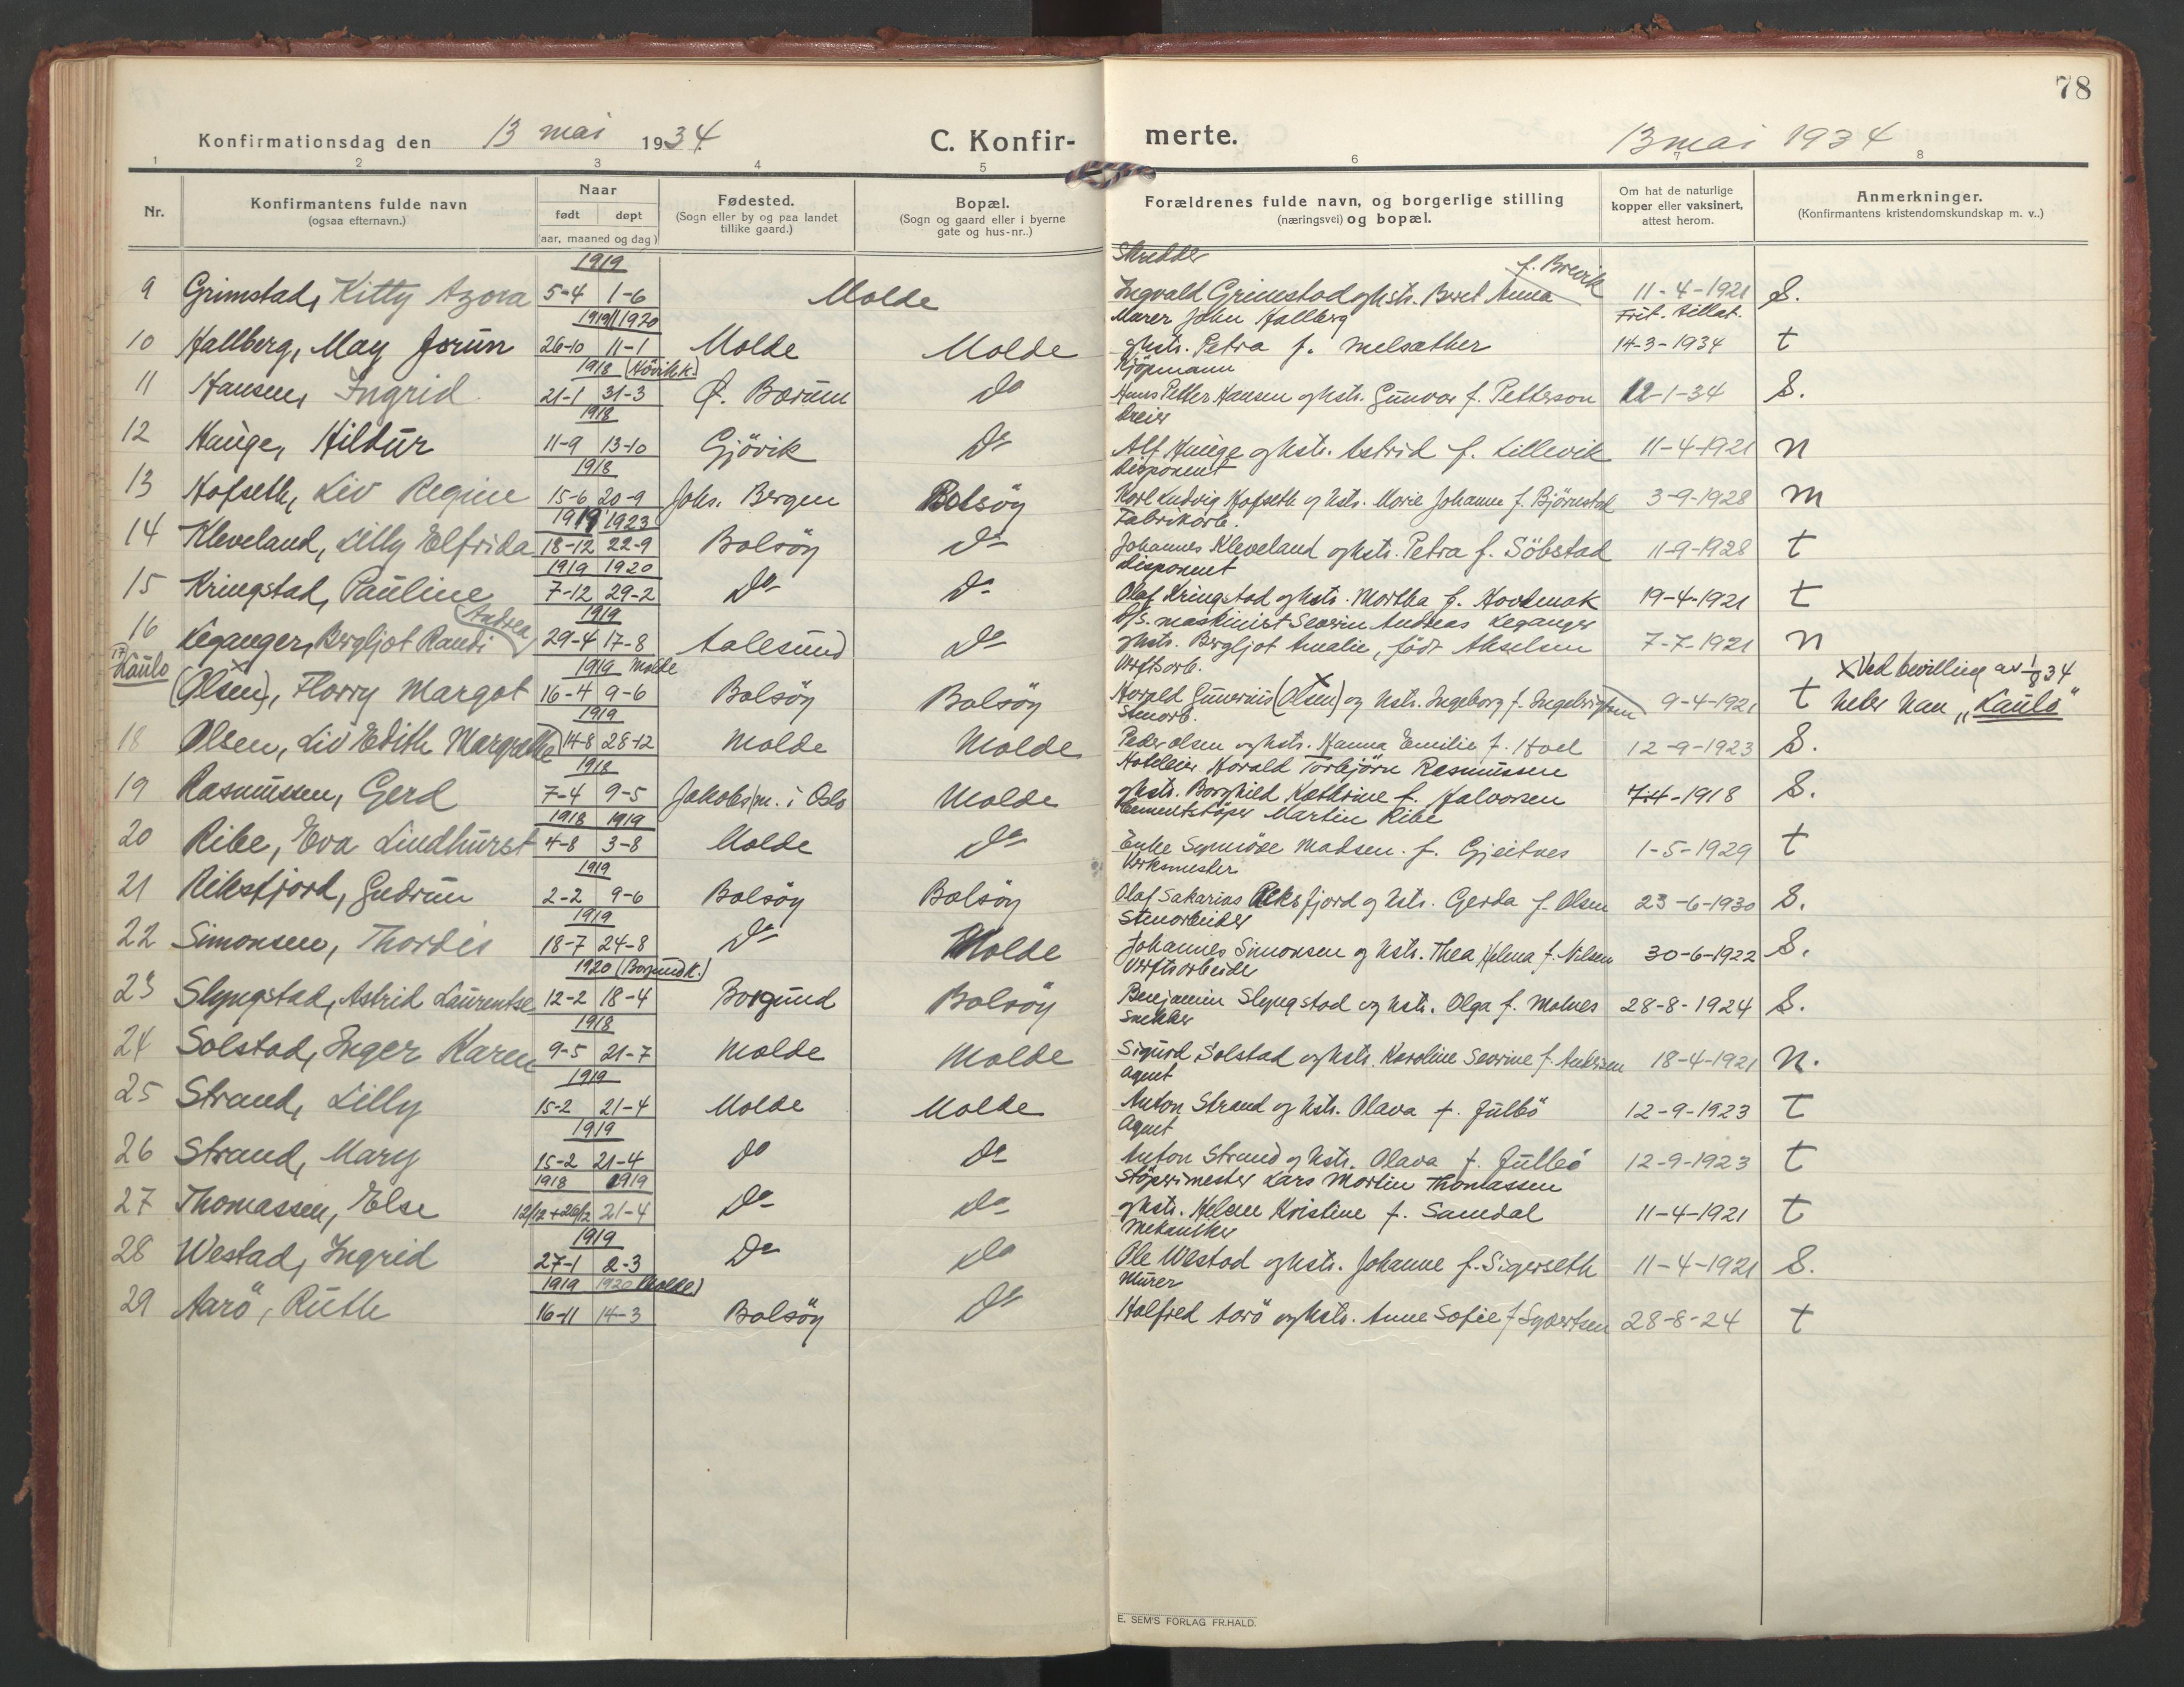 78
Konfirmationsdag den 13 mai 1934. C. Konfir- merte. 13 mai 1934
1 2 3 4 5 6 7 8
Nr. Konfirmantens fulde navn (ogsaa efternavn.) Naar født døpt (aar, maaned og dag) Fødested. (Sogn eller by og paa landet tillike gaard.) Bopæl. (Sogn og gaard eller i byerne gate og hus-nr..) Forældrenes fulde navn, og borgerlige stilling (næringsvei) og bopæl. Om hat de naturlige kopper eller vaksinert, attest herom. Anmerkninger. (Konfirmantens kristendomskundskap m. v..)
1919 Skredder f. Brevik
9 Grimstad, Kitty Azora 5-4 1-6 Molde Ingvald Grimstad og hstr. Beret Anna 11-4-1921 S.
1919 1920 Murer John Hallberg Frit. tillat.
10 Hallberg, May Jorun 26-10 11-1 Molde Molde og hstr. Petra f. Melsæther 14-3-1934 t
1918 (Hövik k.) Kjöpmann
11 Hansen, Ingrid 21-1 31-3 Ø. Bærum Do Hans Petter Hansen og hstr. Gunvor f. Petterson 12-1-34 S.
1918 Dreier
12 Hauge, Hildur 11-9 13-10 Gjövik Do Alf Hauge og hstr. Astrid f. Lillevik 11-4-1921 n
1918 Disponent
13 Hofseth, Liv Regine 15-6 20-9 Johs. Bergen Bolsöy Karl Ludvig Hofseth og hstr. Marie Johanne f. Björnstad 3-9-1928 m
1919 1923 Fabrikarb.
14 Kleveland, Lilly Elfrida 18-12 22-9 Bolsöy Do Johannes Kleveland og hstr. Petra f. Söbstad 11-9-1928 t
1919 1920 Disponent
15 Kringstad, Pauline 7-12 29-2 Do Do Olaf Kringstad og hstr. Martha f. Hovdenak 19-4-1921 t
Andrea 1919 D/S. maskinist Severin Andreas Leganger
16 Leganger, Bergljot Randi 29-4 17-8 Aalesund Do og hstr. Bergljot Amalie, født Akselsen 7-7-1921 n
17 Kaulo 1919 Molde Verftsarb. x Ved bevilling av 1/8 34
(Olsen), Florry Margot 16-4 9-6 Bolsöy Bolsöy Harald Gunerius (Olsen) og hstr. Ingeborg f. Ingebrigtsen 9-4-1921 t heter han „Kaulo"
1919 Stenarb.
18 Olsen, Liv Edith Margrethe 14-8 28-12 Molde Molde Peder Olsen og hstr. Hanna Emilie f. Hoel 12-9-1923 S.
1918 Hoteleier Harald Torbjörn Rasmussen
19 Rasmussen, Gerd 7-4 9-5 Jakobs m. i Oslo Molde og hstr. Borghild Kathrine f. Halvorsen 7-4-1918 S.
1918 1919 Cementstöper Martin Ribe
20 Ribe, Eva Lindhurst 4-8 3-8 Molde Do Enke Synnöve Madsen f. Gjeitnes 1-5-1929 t
1919 Verksmester
21 Riksfjord, Gudrun 2-2 9-6 Bolsöy Bolsöy Olaf Sakarias Reksfjord og hstr. Gerda f. Olsen 23-6-1930 S.
1919 Stenarbeider
22 Simonsen, Thordis 18-7 24-8 Do Molde Johannes Simonsen og hstr. Thea Helena f. Nilsen 30-6-1922 S.
1920 (Borgund k.) Verftsarbeider
23 Slyngstad, Astrid Laurentse 12-2 18-4 Borgund Bolsöy Benjamin Slyngstad og hstr. Olga f. Molnes 28-8-1924 S.
1918 Snekker
24 Solstad, Inger Karen 9-5 21-7 Molde Molde Sigurd Solstad og hstr. Karoline Severine f. Andersen 18-4-1921 n.
1919 Agent
25 Strand, Lilly 15-2 21-4 Molde Molde Anton Strand og hstr. Olava f. Julbö 12-9-1923 t
1919 Agent
26 Strand, Mary 15-2 21-4 Do Do Anton Strand og hstr. Olava f. Julbö 12-9-1923 t
1918 1919 Støperimester Lars Martin Thomassen
27 Thomassen, Else 12/12 + 26/2 21-4 Do Do og hstr. Helene Kristine f. Samdal 11-4-1921 t
1919 Mekaniker
28 Westad, Ingrid 27-1 2-3 Do Do Ole Westad og hstr. Johanne f. Sigerseth 11-4-1921 S.
1919 1920 (Molde) Murer
29 Aarö, Ruth 16-11 14-3 Bolsöy Do Halfred Aarö og hstr. Anne Sofie f. Syvertsen 28-8-24 t
E. SEM'S FORLAG FR.HALD.